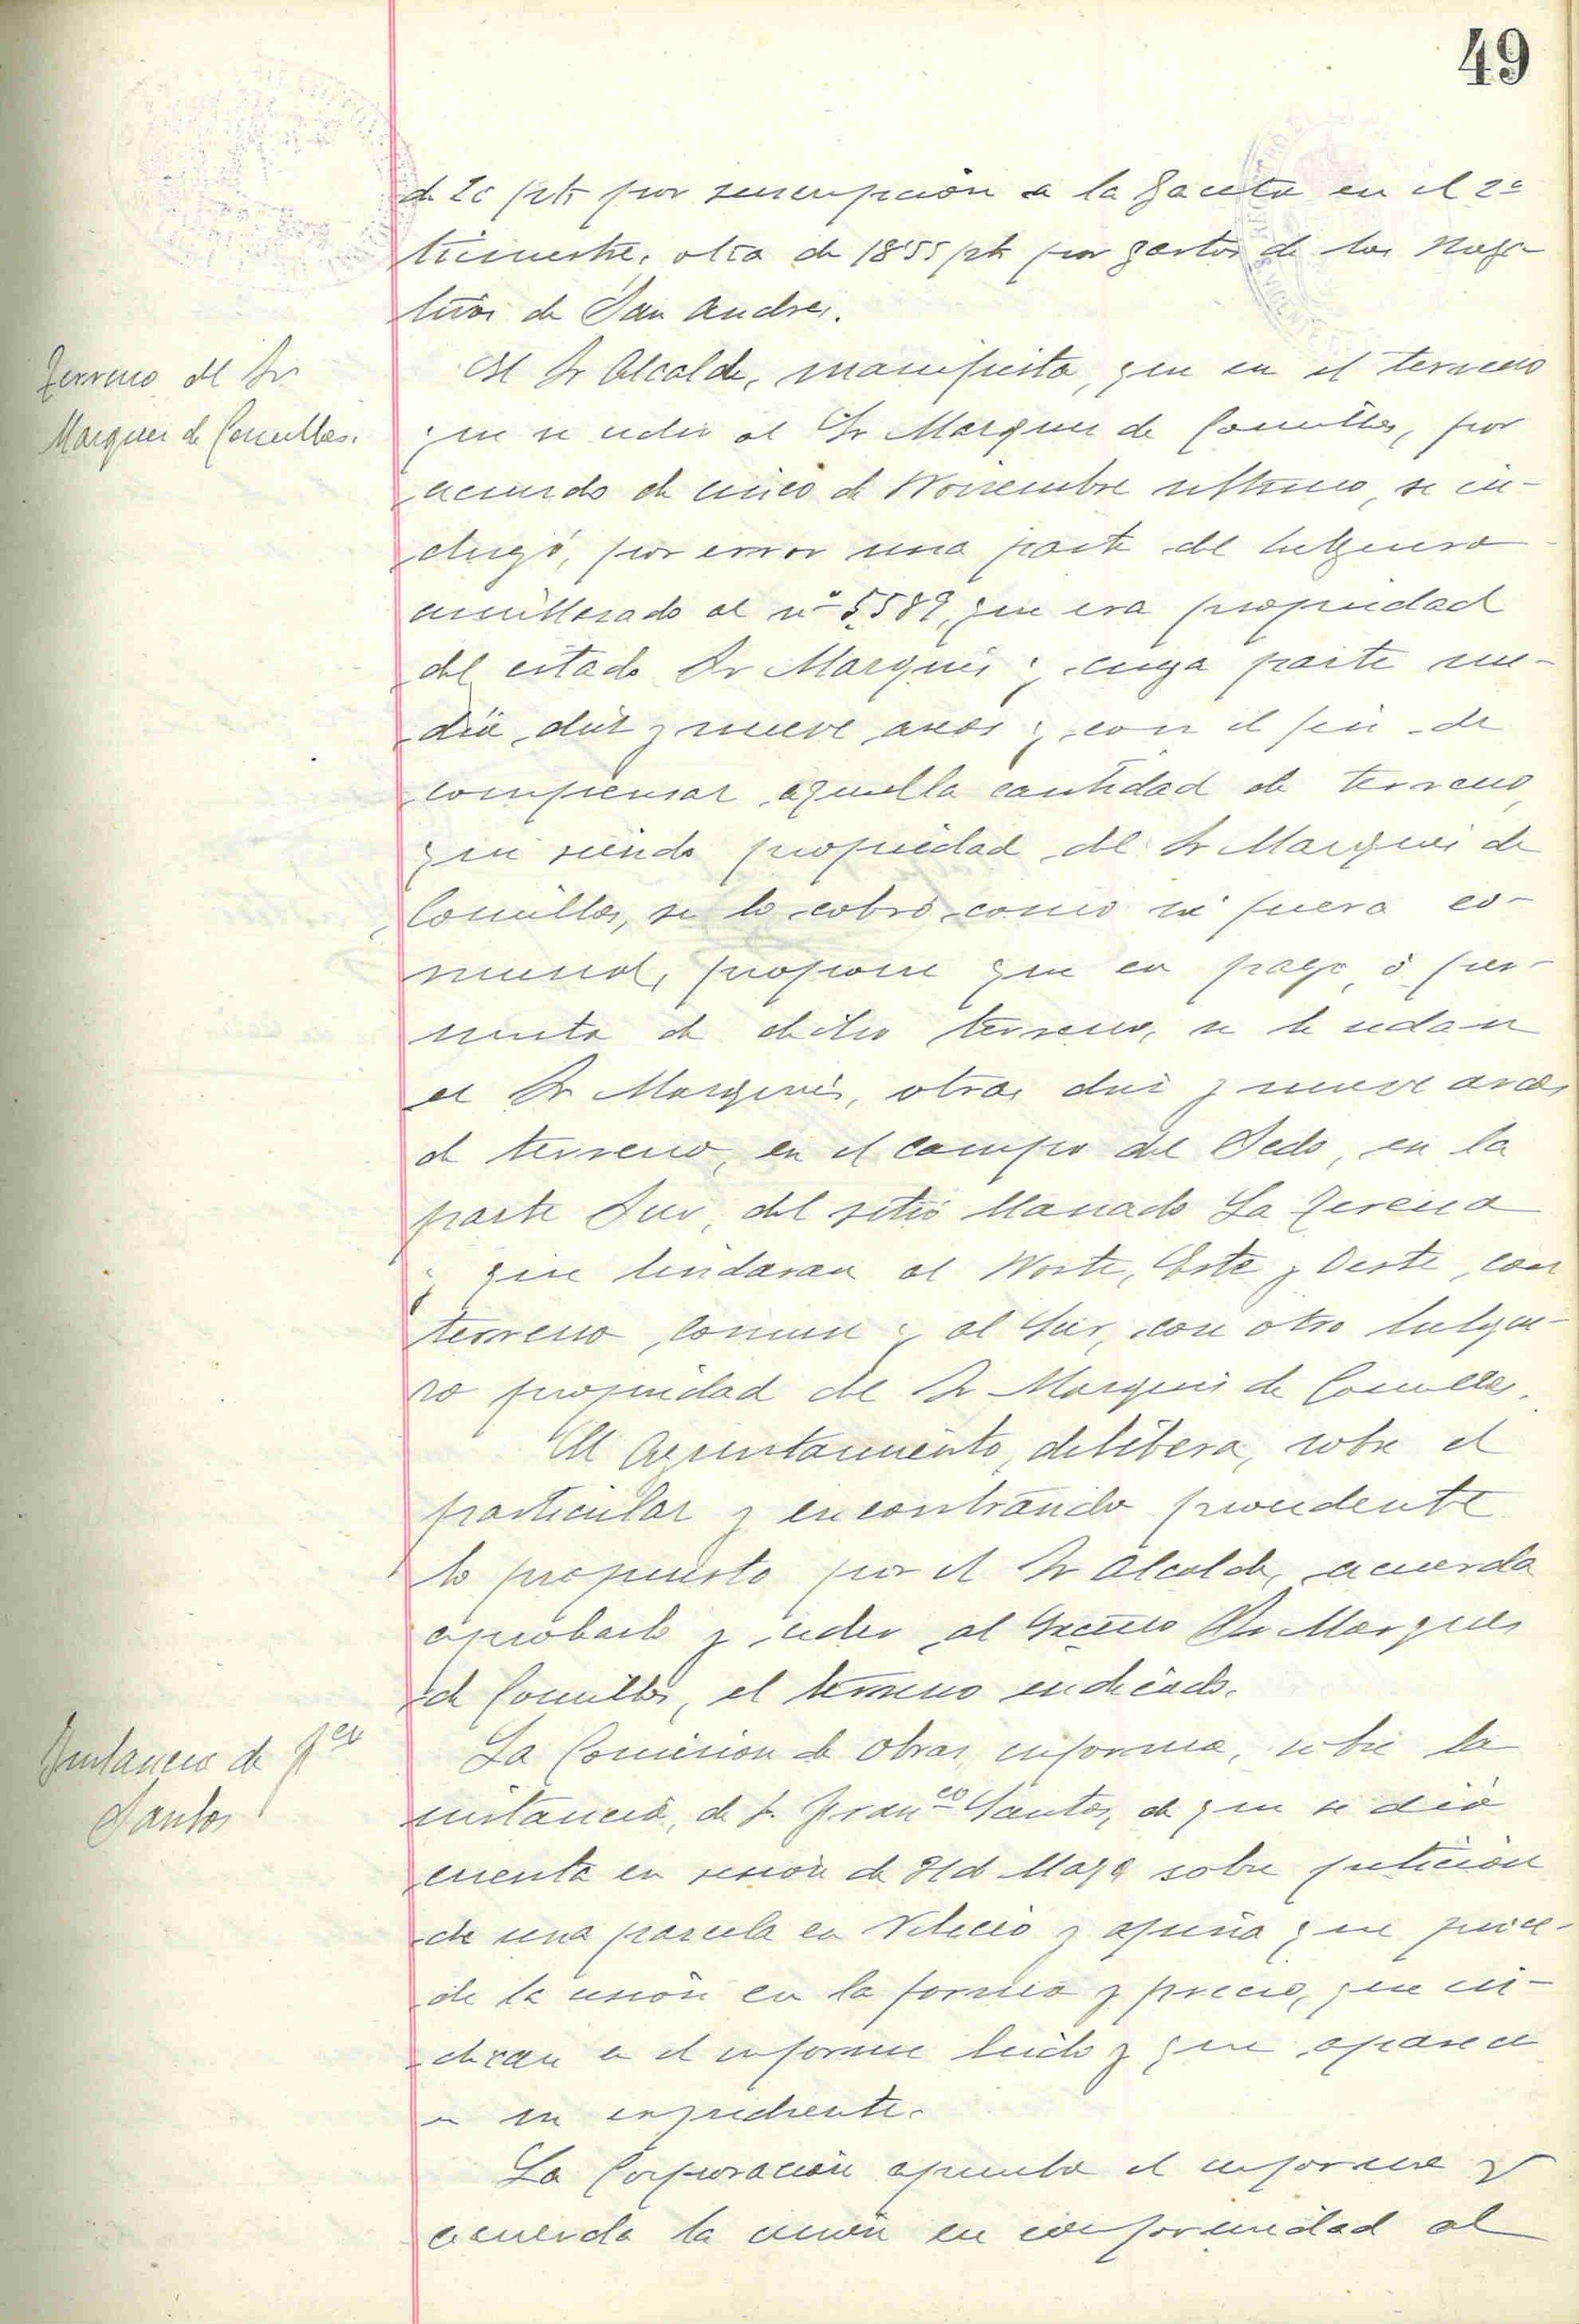 49
de 20 pts por suscripción a la Gaceta en el 2º
trimestre, otra de 18'55 pts por gastos de los
de San Andres.
Terreno del Sr
Marques de Comillas.
El Sr Alcalde, manifiesta, que en el terreno
que se cedió al Sr Marques de Comillas, por
acuerdo de cinco de Noviembre ultimo, se in-
cluyó, por error una parte del helguero
amillarado al nº 5.589, que era propiedad
del citado Sr Marqués y cuya parte me-
día diez y nueve areas y con el fin de
compensar aquella cantidad de terreno,
que siendo propiedad del Sr Marques de
Comillas, se lo cobró como si fuera co-
munal, propone que en pago ó per-
muta de dicho terreno, se le cedan
al Sr Marqués, otras diez y nueve areas
de terreno, en el campo de Sedo, en la
parte Sur, del sitio llamado La
y que lindaran al Norte, Este y Oeste, con
terreno comun y al Sur, con otro helgue-
ro propiedad del Sr Marques de Comillas.
El Ayuntamiento, delibera, sobre el
particular y encontrando procedente
lo propuesto por el Sr Alcalde, acuerda
aprobarlo y ceder al Excmo Sr Marques
de Comillas, el terreno indicado.
Instancia de Fco
Santos
La Comision de obras, informa, sobre la
instancia, de D. Franco Santos, de que se dió
cuenta en sesión de 31 de Mayo sobre petición
de una parcela en y opina que proce-
de la cesión en la forma y precio, que in-
dican en el informe leido y que aparece
en su expediente.
La Corporación aprueba el informe y
acuerda la cesión en conformidad al